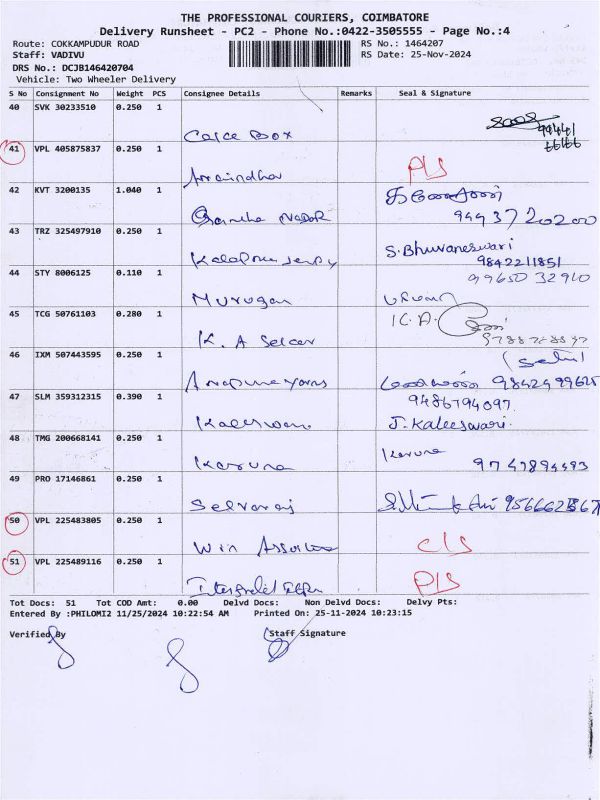 THE PROFESSIONAL COURIERS, COIMBATORE
Delivery Runsheet - PC2 - Phone No.:0422-3505555 - Page No.:4
Route: COKKAMPUDUR ROAD RS No.: 1464207
Staff: VADIVU RS Date: 25-Nov-2024
DRS No.: DCJB146420704
Vehicle: Two Wheeler Delivery
S No Consignment No Weight PCS Consignee Details Remarks Seal & Signature
40 SVK 30233510 0.250 1
Box
41 VPL 405875837 0.250 1
P/S
42 KVT 3200135 1.040 1
9443720200
43 TRZ 325497910 0.250 1
S. Bhuvaneswari
9842211851
44 STY 8006125 0.110 1 99650 32910
Murugan
45 TCG 50761103 0.280 1 K. A.
K. A Selvar
46 IXM 507443595 0.250 1
47 SLM 359312315 0.390 1 9486794097
J. Kaleeswari
48 TMG 200668141 0.250 1 Karuna
Karuna 9747894493
49 PRO 17146861 0.250 1
Selvaraj
50 VPL 225483805 0.250 1
Win
51 VPL 225489116 0.250 1
Tot Docs: 51 Tot COD Amt: 0.00 Delvd Docs: Non Delvd Docs: Delvy Pts:
Entered By :PHILOMI2 11/25/2024 10:22:54 AM Printed On: 25-11-2024 10:23:15
Verified By Staff Signature